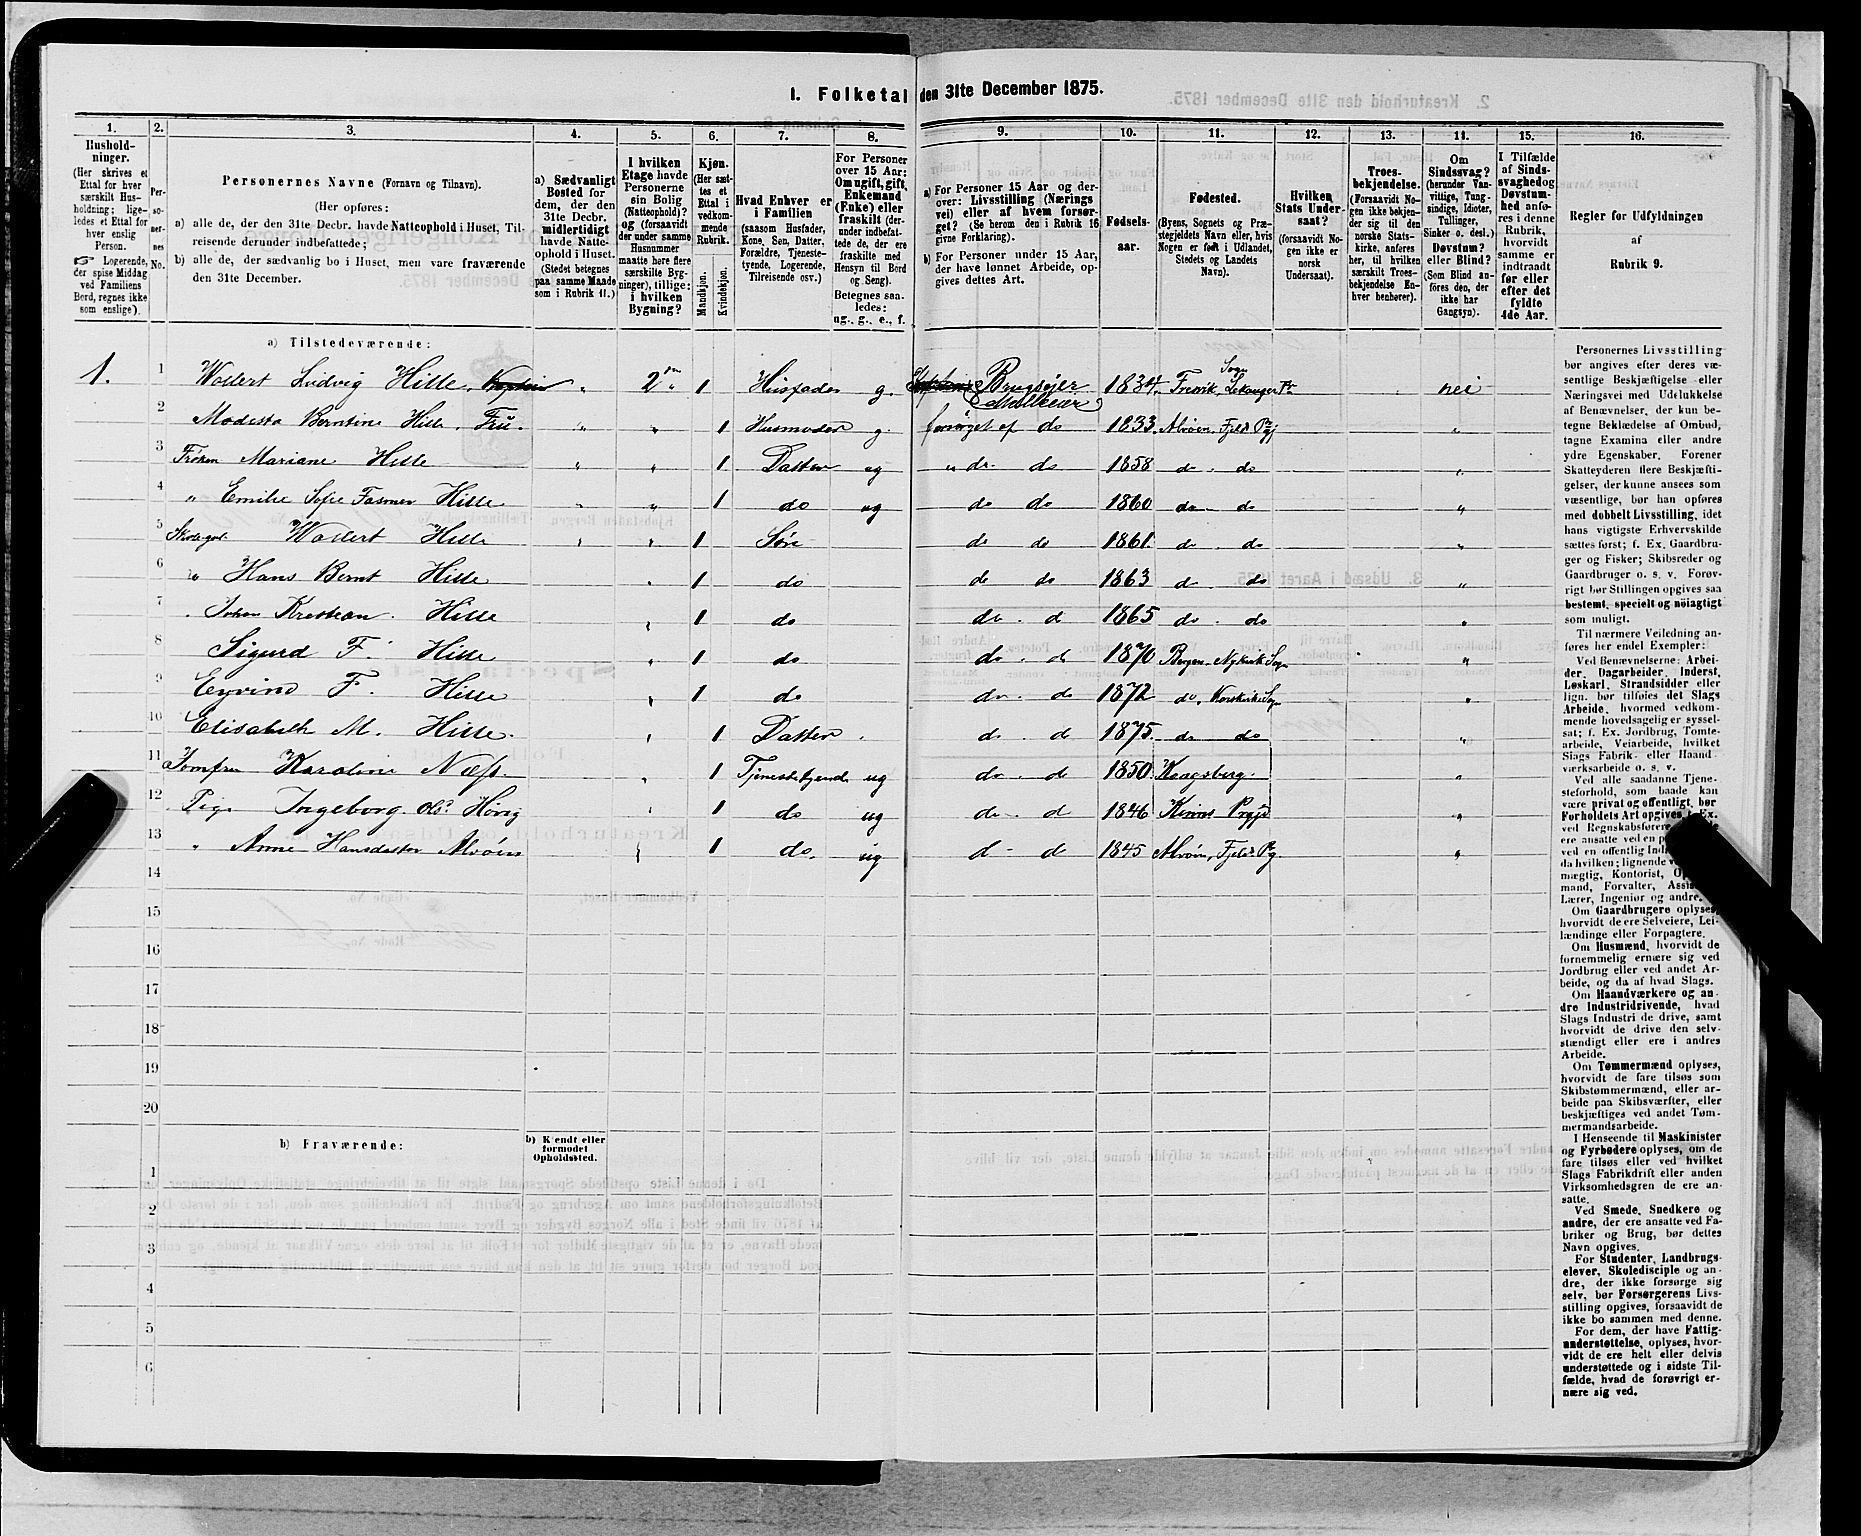 1. Folketal den 31te December 1875.
1. 2. 3. 4. 5. 6. 7. 8. 9. 10. 11. 12. 13. 14. 15. 16.
Hushold-
ninger.
(Her skrives et
Ettal for hver
særskilt Hus-
holdning; lige-
ledes et Ettal for
hver enslig
Person.
☞ Logerende,
der spise Middag
ved Familiens
Bord, regnes ikke
som enslige).
Per-
so-
ner-
nes
No.
Personernes Navne (Fornavn og Tilnavn).
(Her opføres:
a) alle de, der den 31te Decbr. havde Natteophold i Huset, Til-
reisende derunder indbefattede;
b) alle de, der sædvanlig bo i Huset, men vare fraværende
den 31te December.
a) Sædvanligt
Bosted for
dem, der den
31te Decbr.
midlertidigt
havde Natte-
ophold i Huset.
(Stedet betegnes
paa samme Maade
som i Rubrik 11.)
I hvilken
Etage havde
Personerne
sin Bolig
(Natteophold)?
og (forsaavidt
der under samme
Husnummer
maatte høre flere
særskilte Byg-
ninger), tillige:
i hvilken
Bygning?
Kjøn.
(Her sæt-
tes et
Ettal i
vedkom-
mende
Rubrik.
Mandkjøn.
Kvindekjøn.
Hvad Enhver er
i Familien
(saasom Husfader,
Kone, Søn, Datter,
Forældre, Tjeneste-
tyende, Logerende,
Tilreisende osv.)
For Personer
over 15 Aar:
Om ugift, gift,
Enkemand
(Enke) eller
fraskilt (der-
under indbefat-
tede de, ere
fraskilte med
Hensyn til Bord
og Seng).
Betegnes saa-
ledes:
ug., g., e., f.
a) For Personer 15 Aar og der-
over: Livsstilling (Nærings
vei) eller af hvem forsør-
get? (Se herom den i Rubrik 16
givne Forklaring).
b) For Personer under 15 Aar,
der have lønnet Arbeide, op-
gives dettes Art.
Fødsels-
aar.
Fødested.
(Byens, Sognets og Præ-
stegjeldets Navn eller, hvis
Nogen er født i Udlandet,
Stedets og Landets
Navn).
Hvilken
Stats Under-
saat?
(forsaavidt No-
gen ikke er
norsk
Undersaat).
Troes-
bekjendelse.
(Forsaavidt No-
gen ikke bekjen-
der sig til den
norske Stats-
kirke, anføres
her, til hvilken
særskilt Troes-
bekjendelse En-
hver henhører).
Om
Sindssvag?
(herunder Van-
vittige, Tung-
sindige, Idioter,
Tullinger,
Sinker o. desl.)
Døvstum?
eller Blind?
(Som Blind an-
føres den, der
ikke har
Gangsyn).
I Tilfælde
af Sinds-
svaghed og
Døvstum-
hed anfø-
res i denne
Rubrik,
hvorvidt
samme er
indtraadt
før eller
efter det
fyldte
4de Aar.
Regler for Udfyldningen
af
Rubrik 9.
a) Tilstedeværende:
1. 1 Wollert Ludvig Hille „ 2 1 Husfader g. Brugseier Mølleeier 1834 Fresvik Sogn Lekanger Pr nei
2 Modesta Berntine Hille. Fru. „ „ 1 Husmoder g. forsørget af do 1833 Alvøen, Fjeld Prgj „
3 Frøken Mariane Hille „ „ 1 Datter ug „ do do 1858 do do „
4 „ Emilie Sofie Fasmer Hille „ „ 1 do ug do do 1860 do do „
5 Wollert Hille „ „ 1 Søn do do 1861 do do „
6 „ Hans Bernt Hille „ 1 do do do 1863 do do „
7 Johan Kristian Hille „ 1 do do do 1865 do do „
8 Sigurd F. Hille „ 1 do do do 1870 Bergen, Nykirk Sogn „
9 Eyvind F. Hille „ 1 do do do 1872 do, Korskirke Sogn „
10 Elisabeth M. Hille. „ 1 Datter do do 1875 do do „
11 Jomfru Karoline Næss. „ 1 Tjenestetyende ug do do 1850 Kragsberg. „
12 Pige Ingeborg Olsd. Høvig „ 1 do ug do do 1846 Kinns Prgjd „
13 „ Anne Hansdatter Alvøen „ 1 do. ug do do 1845 Alvøen, Fjeld Prg „
14
15
16
17
18
19
20
b) Fraværende:
b) Kjendt eller
formodet
Opholdssted.
1
2
3
4
5
6
Personernes Livsstilling
bør angives efter deres væ-
sentlige Beskjæftigelse eller
Næringsvei med Udelukkelse
af Benævnelser, der kun be-
tegne Beklædelse af Ombud,
tagne Examina eller andre
ydre Egenskaber. Forener
Skatteyderen flere Beskjæfti-
gelser, der kunne ansees som
væsentlige, bør han opføres
med dobbelt Livsstilling, idet
hans vigtigste Erhvervskilde
sættes først; f. Ex. Gaardbru-
ger og Fisker; Skibsreder og
Gaardbruger o. s. v. Forøv-
rigt bør Stillingen opgives saa
bestemt, specielt og nöiagtigt
som muligt.
Til nærmere Veiledning an-
føres her endel Exempler:
Ved Benævnelserne: Arbei-
der, Dagarbeider, Inderst,
Løskarl, Strandsidder eller
lign. bør tilføies det Slags
Arbeide, hvormed vedkom-
mende hovedsagelig er syssel-
sat; f. Ex. Jordbrug, Tomte-
arbeide, Veiarbeide, hvilket
Slags Fabrik- eller Haand
værksarbeide o. s. v.
Ved alle saadanne Tjene-
steforhold, som baade kan
være privat og offentligt, bør
Forholdets Art opgives, f. Ex.
ved Regnskabsførere,
ere ansatte ved en
ved en offentlig
da hvilken; lignende
mægtig, Kontorist,
mand, Forvalter,
Lærer, Ingeniør og andre.
Om Gaardbrugere oplyses,
hvorvidt de ere Selveiere, Lei-
lændinge eller Forpagtere.
Om Husmænd, hvorvidt de
fornemmelig ernære sig ved
Jordbrug eller ved andet Ar-
beide, og da af hvad Slags.
Om Haandværkere og an-
dre Industridrivende, hvad
Slags Industri de drive, samt
hvorvidt de drive den selv-
stændigt eller ere i andres
Arbeide.
Om Tømmermænd oplyses,
hvorvidt de fare tilsøs som
Skibstømmermænd, eller ar-
beide paa Skibsværfter, eller
beskjæftiges ved andet Tøm-
mermandsarbeide.
I Henseende til Maskinister
og Fyrbødere oplyses, om de
fare tilsøs eller ved hvilket
Slags Fabrikdrift eller anden
Virksomhedsgren de ere an-
satte.
Ved Smede, Snedkere og
andre, der ere ansatte ved Fa-
briker og Brug, bør dettes
Navn opgives.
For Studenter, Landbrugs-
elever, Skoledisciple og an-
dre, der ikke forsørge sig
selv, bør Forsørgerens Livs-
stilling opgives, forsaavidt de
ikke bo sammen med denne.
For dem, der have Fattig-
understøttelse, oplyses, hvor-
vidt de ere helt eller delvis
understøttede og i sidste Til-
fælde, hvad de forøvrigt er-
nære sig ved.